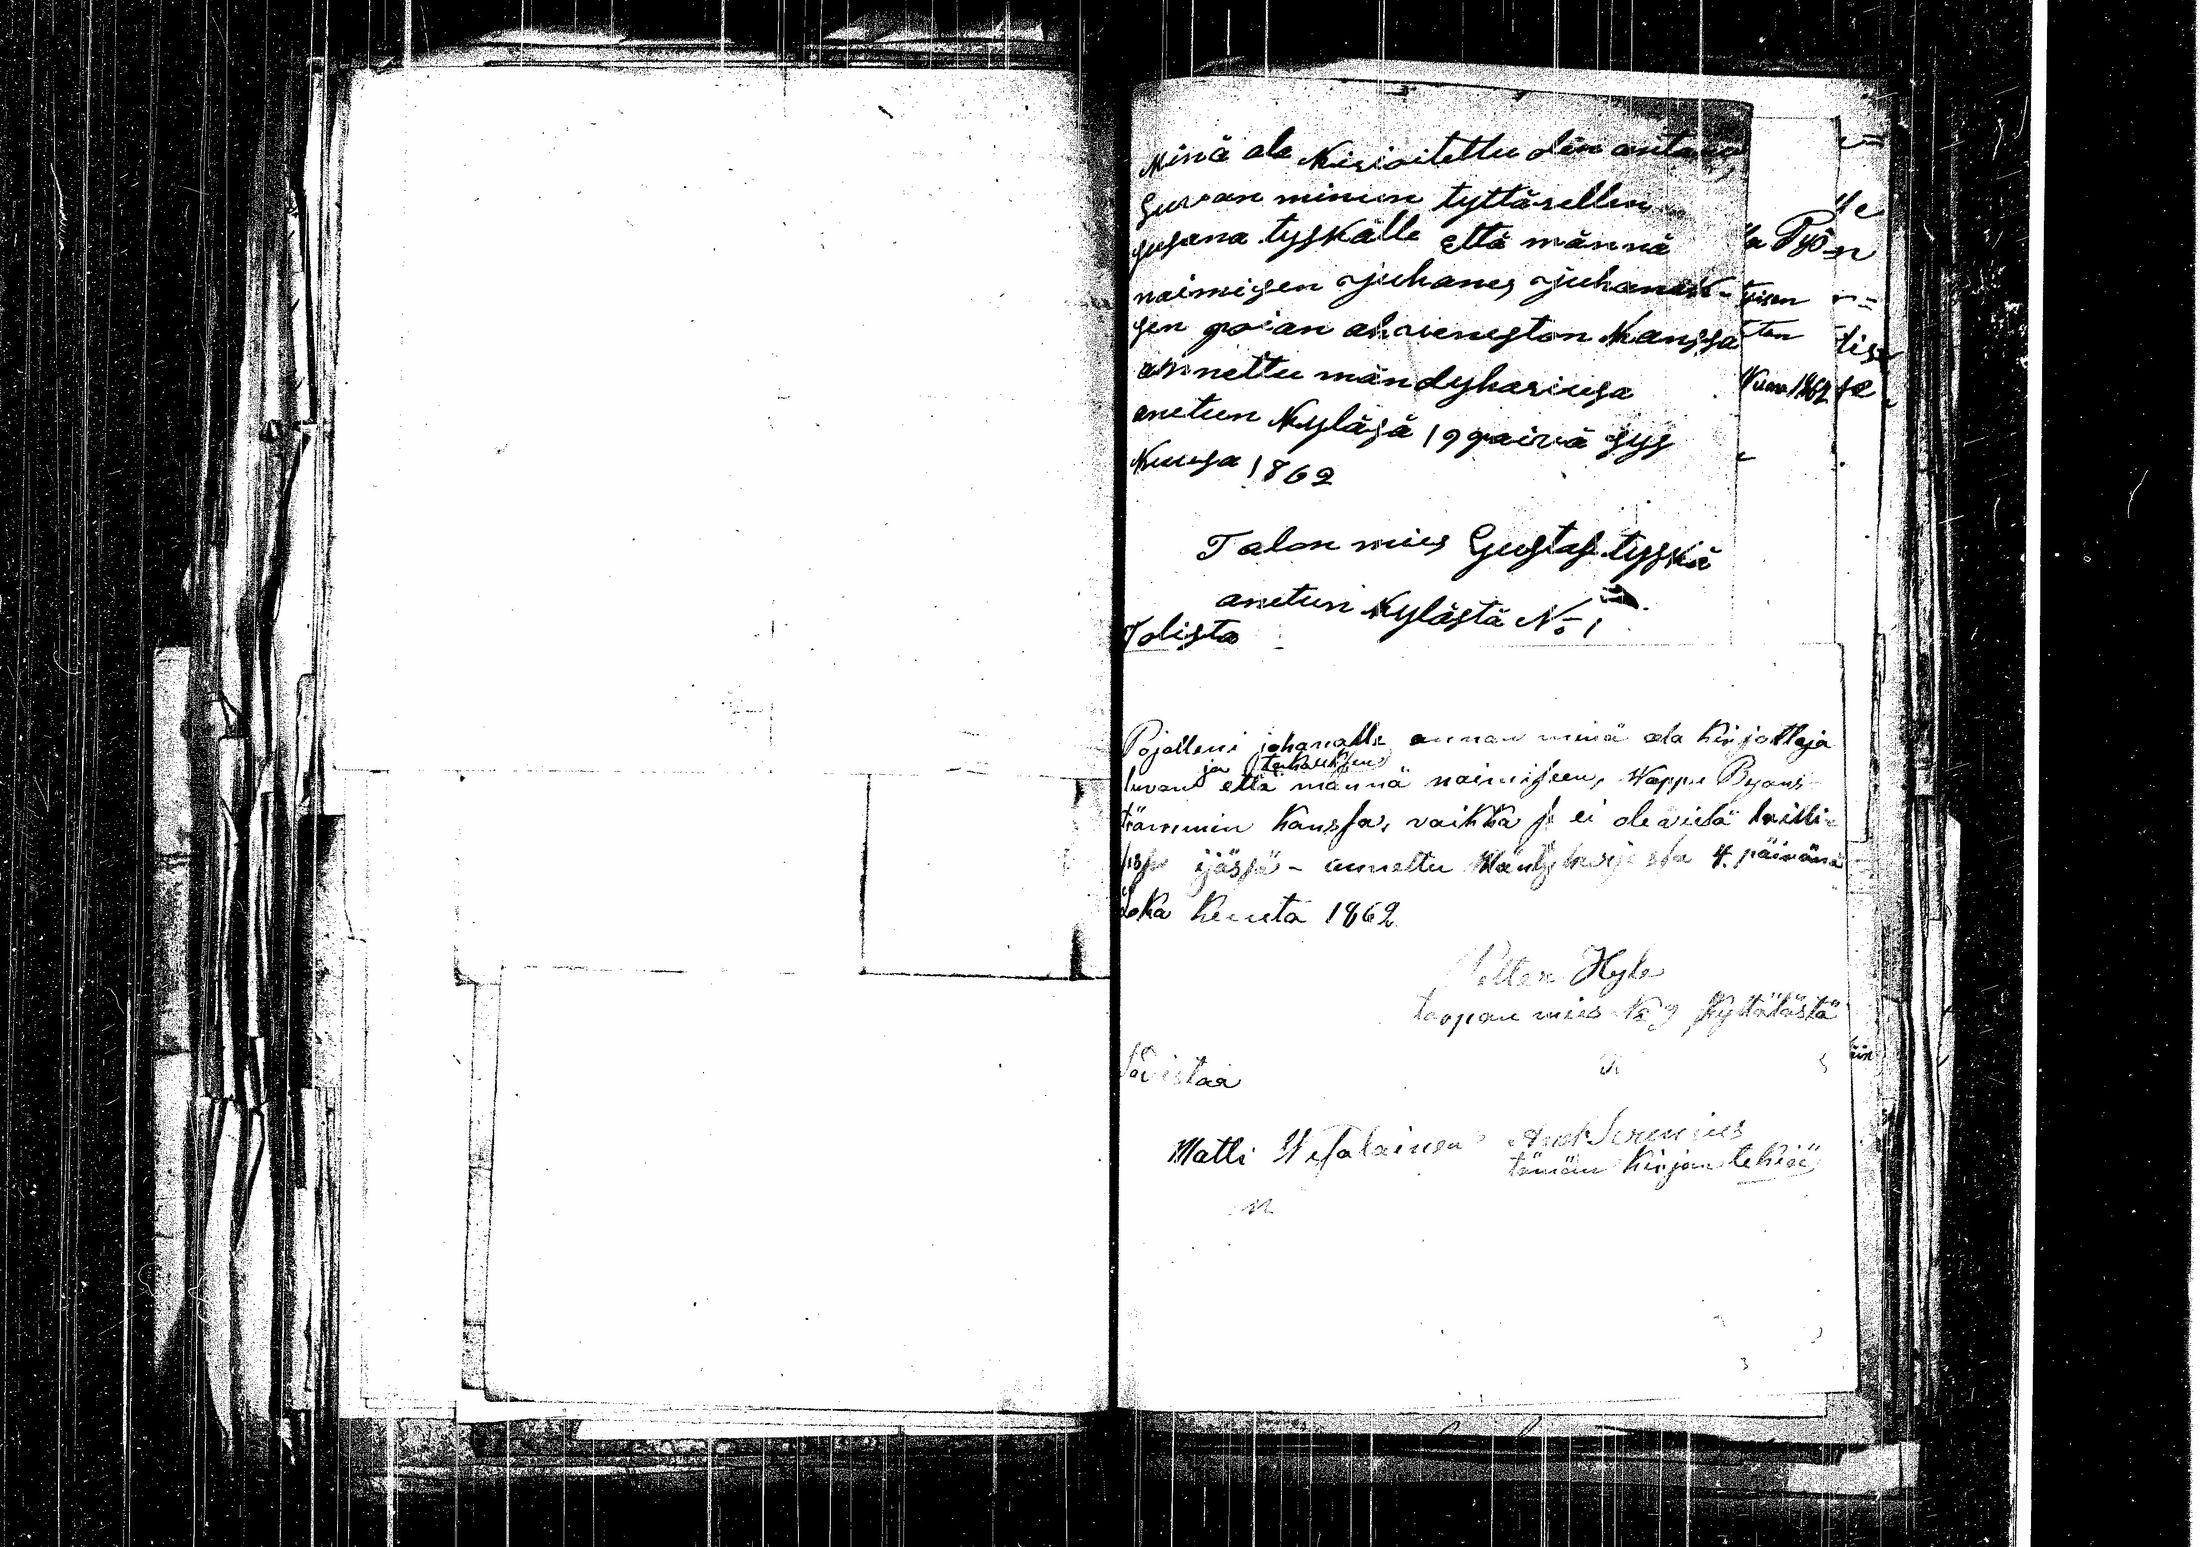 Minä ala Kirioitettu olen antanu
Luvan minun tyttärellen
susana tyskälle että männä
naimisen Juhanes Juhanek-
sen poian ahveneston Kanssa
annettu mändyhariusa
anetun Kyläsä 19 päivä sys
Kuusa 1862
Talon mies Gustaf tyskä
anetun Kylästä No 1
Tolista
Pojalleni johanalle annan minä ala Kirjottaja
ja
luvan että männä naimiseen, Wappu Byans
trämmin Kanssa, vaikka se ei ole vielä lailli-
sessa ijässä - annettu Mäntyharjusta 4. päivänä
loka Kuuta 1862
Petter Hyle
torpan mies No 9 Kyttälästä
Tovistaa
Matti
tämän Kirjan tekiä
la Työn
toisen
ten
Kuun 1862